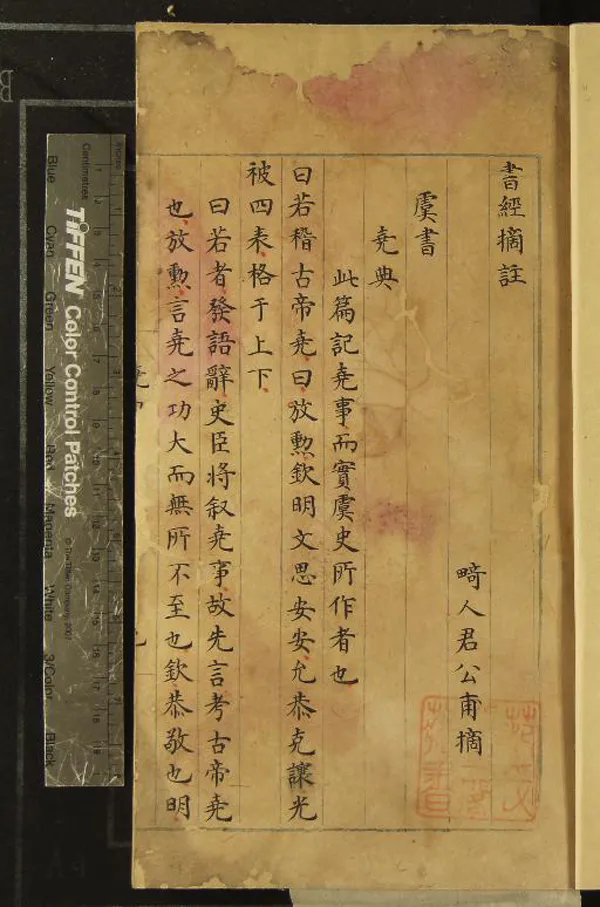 書經摘註
畸人君公甫摘
虞書
堯典
此篇記堯事而實虞史所作者也
曰若稽古帝堯曰放勲欽明文思安安允恭克讓光
被四表格于上下
曰若者發語辭史臣將叙堯事故先言考古帝堯
也放勲言堯之功大而無所不至也欽恭敬也明
inches
Centimetres
TIFFEN Color Control Patches
© The Tiffen Company, 2007
Blue
Cyan
Green
Yellow
Red
Magenta
White
3/Color
Black